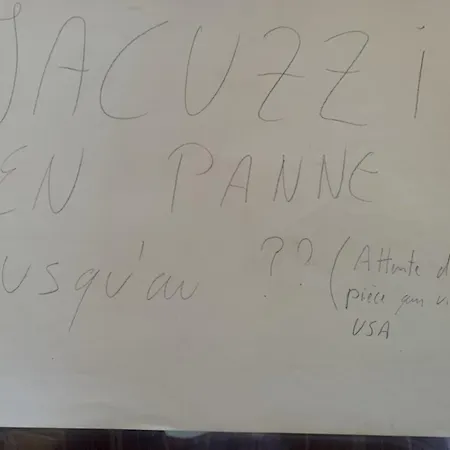 JACUZZI
EN PANNE
Jusqu'au ?? (Attente d
pièce qui vi
USA